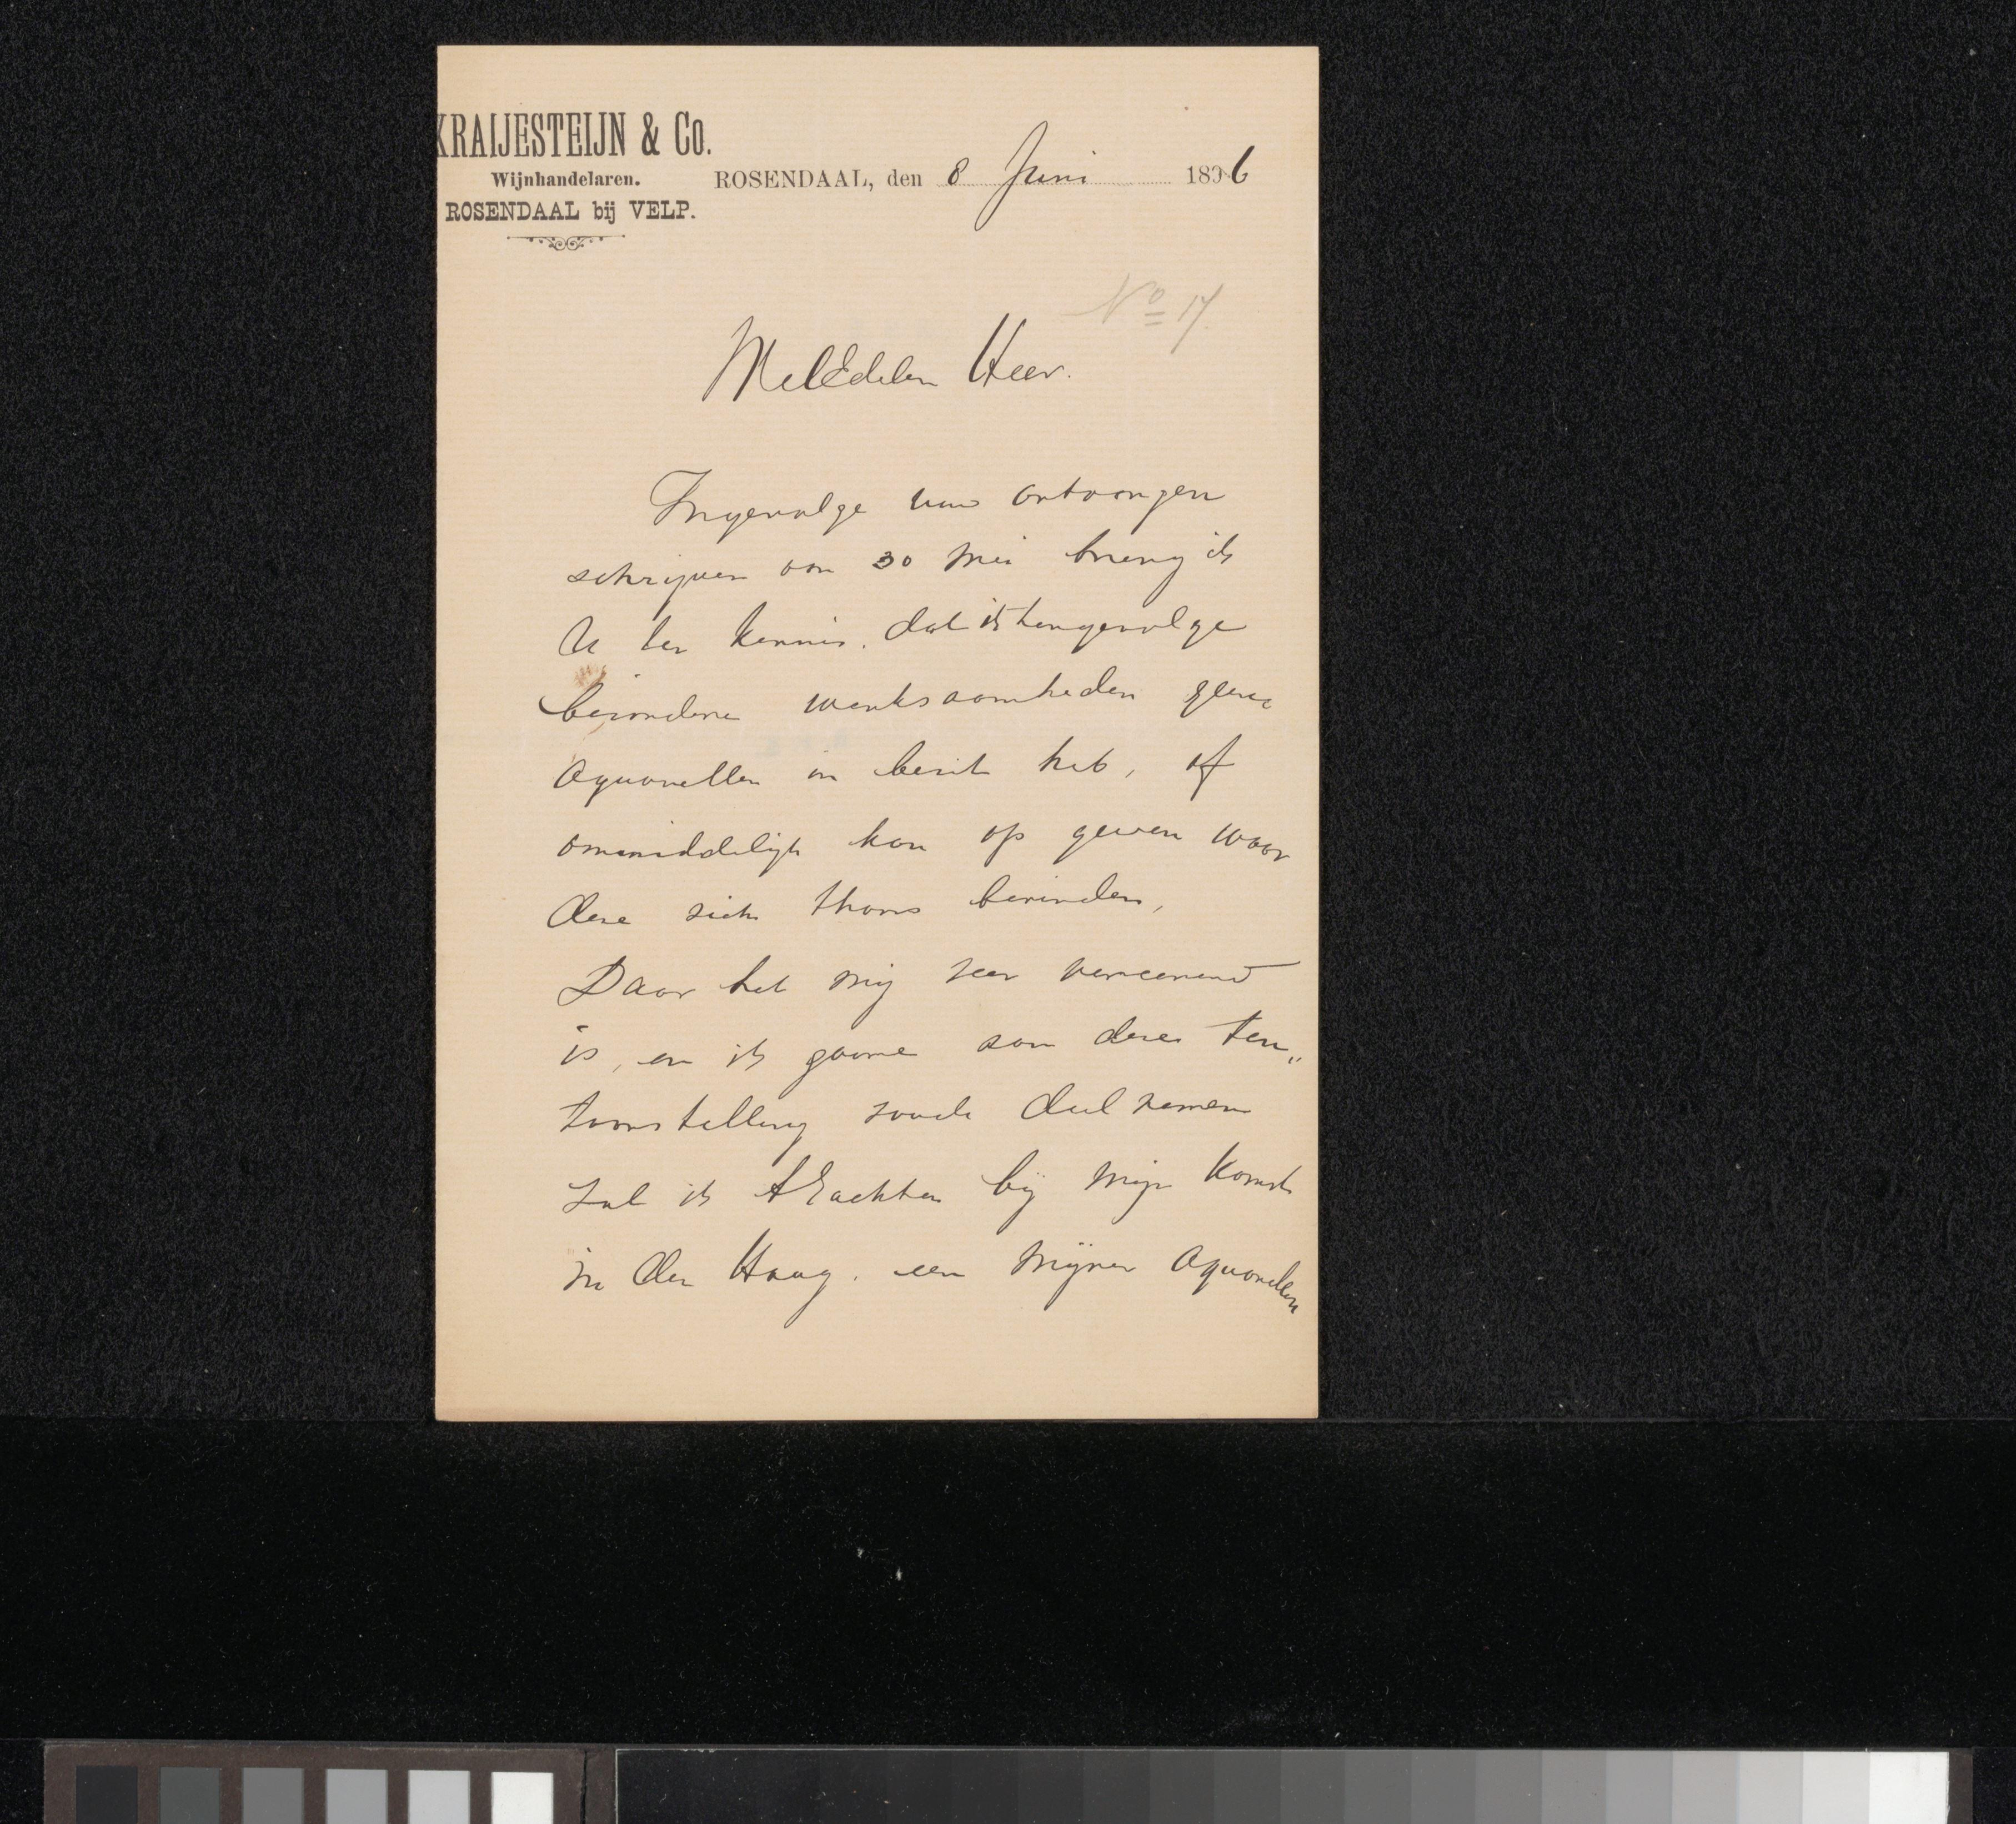 KRAIJESTEIJN & Co.
Wijnhandelaren.
ROSENDAAL bij VELP.
ROSENDAAL, den 8 Juni 1896
No 17.
WelEdelen Heer.
Ingevolge uw ontvangen
schrijven van 30 Mei breng ik
U ter kennis. dat ik tengevolge
bezondere werkzaamheden geene
Aquarellen in bezit heb, of
ommiddelijk kan op geven waar
deze zich thans bevinden,
Daar het mij zeer vereerend
is, en ik gaarne aan deze Ten„
toonstelling zoude deel nemen
zal ik trachten bij mijn komst
in den Haag. een mijner Aquarellen